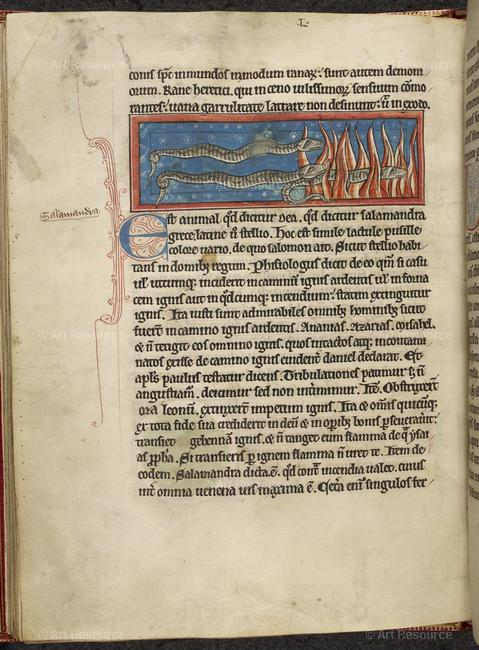 L
corus spc inmundos inmodum ranaꝝ. sunt autem demoni
orum. Rane heretici. qui in ceno uilissimoꝝ sensuum como
rantes: uana garrulitate latrare non desinunt: ut in exodo.
Salamandra.
Est animal qd dicitur dea. qd dicitur salamandra
grece. latine u stellio. Hoc est simile lactule pusille
colore uario. de quo salomon ait. Sicut stellio habi
tans in domibꝫ regum. Phisiologus dicit de eo qm si casu
ul utcumqꝫ inciderit in caminū ignis ardentis. ul in forna
cem ignis aut in qdcumqꝫ incendium: statim extinguitur
ignis. Ita iusti sunt admirabiles omnibꝫ hominibꝫ sicut
fuert in camino ignis ardentis. Ananias. Azarias. misahel.
⁊ n tetigit eos omnino ignis. quos intactos atqꝫ incontami
natos exisse de camino ignis euident daniel declarat. Est
apls paulus testatur dicens. Tribulationes patimur ⁊
angustiam. deicimur sed non interimimur. Obstruxert
ora leonū. extinxert impetum ignis. Ita ⁊ omis quicūqꝫ
ex tota fide sua crediderit in deū ⁊ in opibꝫ bonis pseuerauit:
transiet gehennā ignis. ⁊ n tanget eum flamma de q ysai
as ppha. Si transieris p ignem flamma n uret te. Item de
eodem. Salamandra dicta ē. qd contra incendia ualeo. cuius
int omnia uenena uis maxima ē. Cetera enī singulos fer
© Art Resource
© Art Resource
© Art Resource
© Art Resource
© Art Resource
© Art Resource